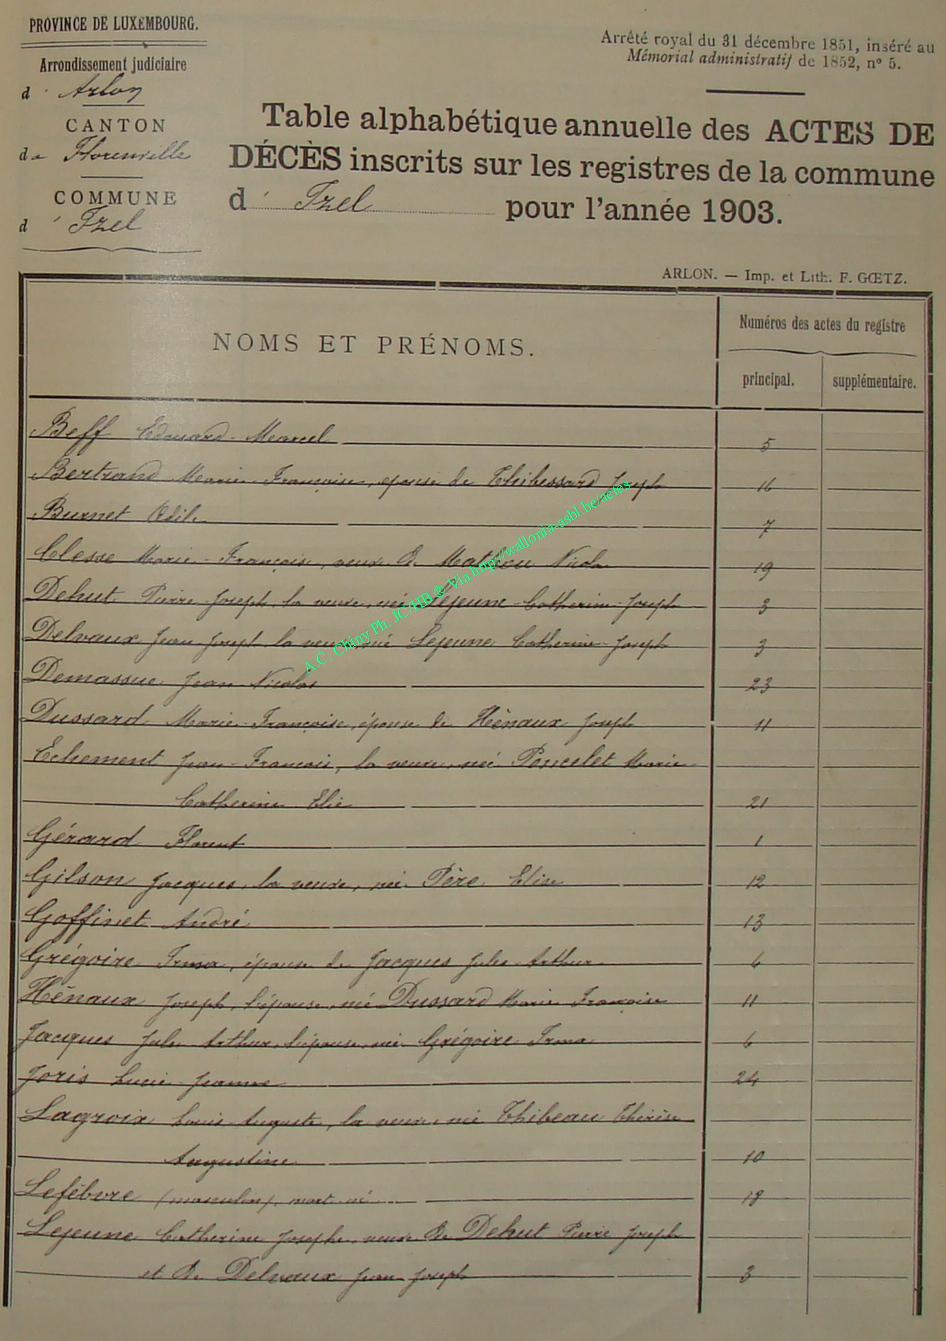 PROVINCE DE LUXEMBOURG.
Arrondissement judiciaire
d' Arlon
CANTON
de Florenville
COMMUNE
d' Izel
Arrêté royal du 31 décembre 1851, inséré au
Mémorial administratif de 1852, n° 5.
Table alphabétique annuelle des ACTES DE
DÉCÈS inscrits sur les registres de la commune
d' Izel pour l'année 1903.
ARLON. — Imp. et Lith. F. GŒTZ.
NOMS ET PRÉNOMS.
Numéros des actes du registre
principal.
supplémentaire.
Beff Edouard-Marcel 5
Bertrand Marie-Françoise, épouse de Thibessard Joseph 16
Burnet Odile 7
Clesse Marie-Françoise, veuve de Mathieu Nicolas 19
Dehut Pierre-Joseph, la veuve, née Lejeune Catherine-Joseph 3
Delvaux Jean-Joseph la veuve, née Lejeune Catherine-Joseph 3
Demassue Jean Nicolas 23
Dussard Marie-Françoise, épouse de Hénaux Joseph 11
Echement Jean-François, la veuve, née Poncelet Marie
Catherine Elie 21
Gérard Florent 1
Gilson Jacques, la veuve, née Père Elise 12
Goffinet André 13
Grégoire Irma, épouse de Jacques Jules-Arthur 6
Hénaux Joseph, l'épouse, née Dussard Marie Françoise 11
Jacques Jules Arthur, l'épouse, née Grégoire Irma 6
Joris Lucie-Jeanne 24
Lagroix Louis-Auguste, la veuve, née Thibeau Thérèse
Augustine 10
Lefébvre (masculin), mort-né 18
Lejeune Catherine Josephe, veuve de Dehut Pierre Joseph
et de Delvaux Jean Joseph 3
A.C. Chiny Ph. JC/HB & Via http://wallonia-asbl.be/actes